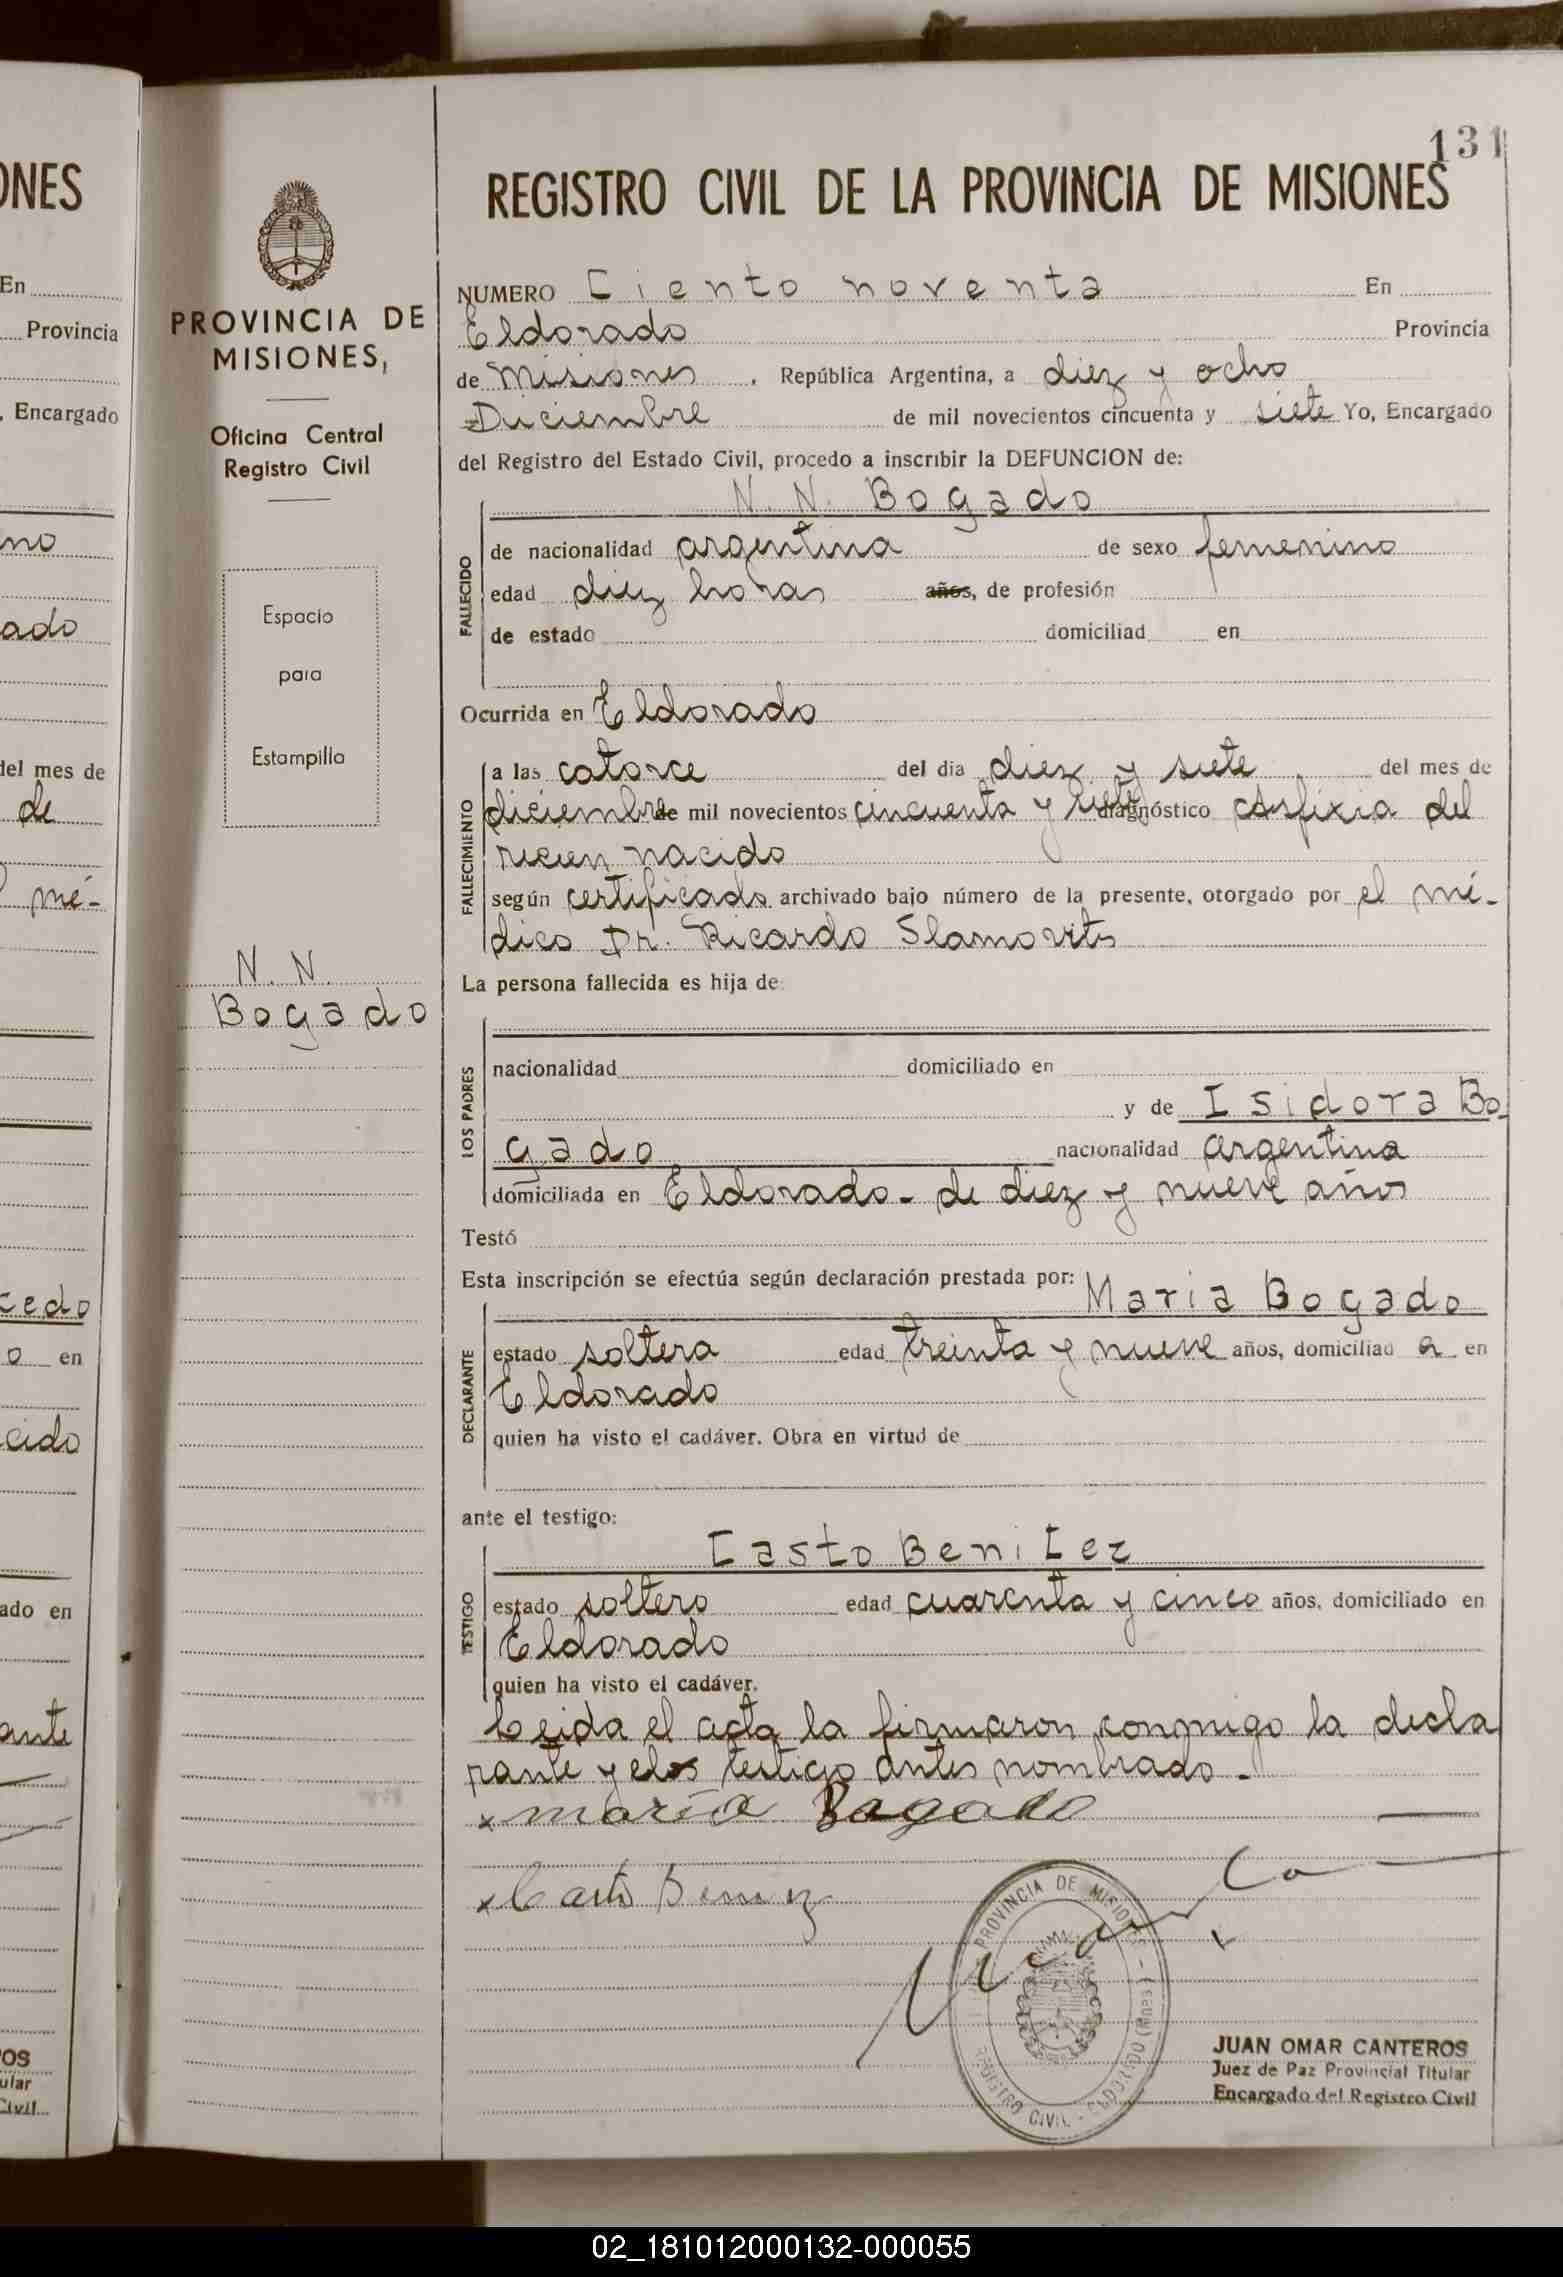 ONES
En
Provincia
, Encargado
no
ado
del mes de
de
mé-
cedo
o en
cido
ado en
ante
OS
ular
Civil
PROVINCIA DE
MISIONES,
Oficina Central
Registro Civil
Espacio
para
Estampilla
N. N.
Bogado
131
REGISTRO CIVIL DE LA PROVINCIA DE MISIONES
NUMERO Ciento noventa En
Eldorado Provincia
de Misiones , República Argentina, a diez y ocho
Diciembre de mil novecientos cincuenta y siete Yo, Encargado
del Registro del Estado Civil, procedo a inscribir la DEFUNCION de:
N. N. Bogado
FALLECIDO
de nacionalidad argentina de sexo femenino
edad diez horas años, de profesión
de estado domiciliad en
Ocurrida en Eldorado
FALLECIMIENTO
a las catorce del dia diez y siete del mes de
diciembre de mil novecientos cincuenta y siete diagnóstico Asfixia del
recien nacido
según certificado archivado bajo número de la presente, otorgado por el mé-
dico Dr. Ricardo Slamovits
La persona fallecida es hija de
LOS PADRES
nacionalidad domiciliado en
y de Isidora Bo
gado nacionalidad argentina
domiciliada en Eldorado - de diez y nueve años
Testó
Esta inscripción se efectúa según declaración prestada por:
Maria Bogado
DECLARANTE
estado soltera edad treinta y nueve años, domiciliad a en
Eldorado
quien ha visto el cadáver. Obra en virtud de
ante el testigo:
Casto Benitez
TESTIGO
estado soltero edad cuarenta y cinco años, domiciliado en
Eldorado
quien ha visto el cadáver.
Leida el acta la firmaron conmigo la decla
rante y el testigo antes nombrado.-
x maria Bogado
x Casto Benitez
PROVINCIA DE MISIONES
REGISTRO CIVIL - ELDORADO (Mnes.)
JUAN OMAR CANTEROS
Juez de Paz Provincial Titular
Encargado del Registro Civil
02_181012000132-000055